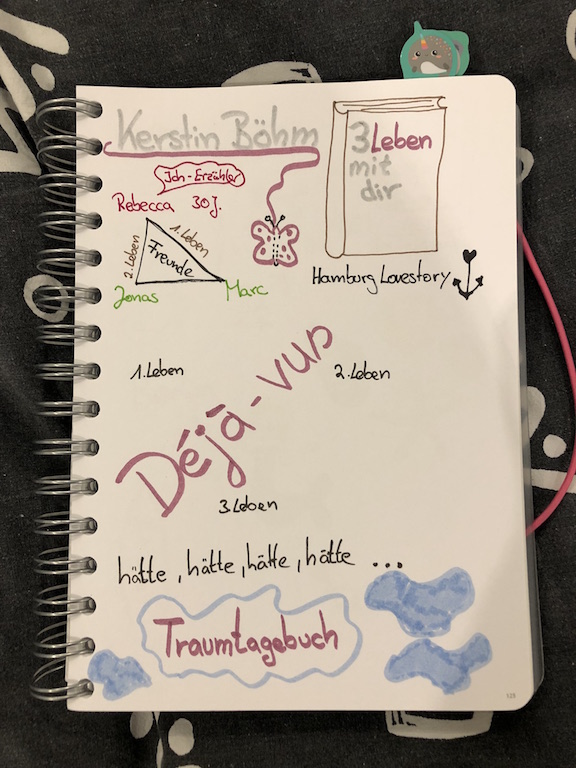 Kerstin Böhm
3 Leben
mit
dir
Ich-Erzähler
Rebecca 30 J.
1. Leben
2. Leben
Freunde
Jonas
Marc
Hamburg Lovestory
1. Leben
2. Leben
Déjà-vus
3. Leben
hätte, hätte, hätte, hätte ...
Traumtagebuch